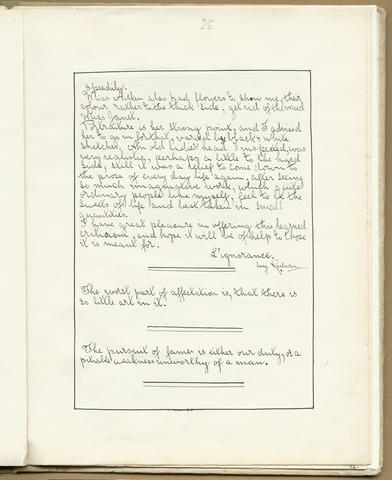 25.
speedily.
Miss Allan also had flowers to show me, their
colour rather to the thick side, get rid of the mud
Miss Janet.
Portraiture is her strong point, and I advised
her to go in for that, varied by black & white
sketches, an old ladies' head I inspected, was
very realistic, perhaps a little to the hard
side; still it was a relief to come down to
the prose of every day life again, after seeing
so much imaginative work, which quite
ordinary people like myself, feel to be the
sweets of life and best taken in small
quantities.
I have great pleasure in offering this learned
criticism, and hope it will be of help to those
it is meant for.
L'ignorance.
The worst part of affectation is, that there is
so little art in it.
The pursuit of fame is either our duty, or a
pitiable weakness unworthy of a man.